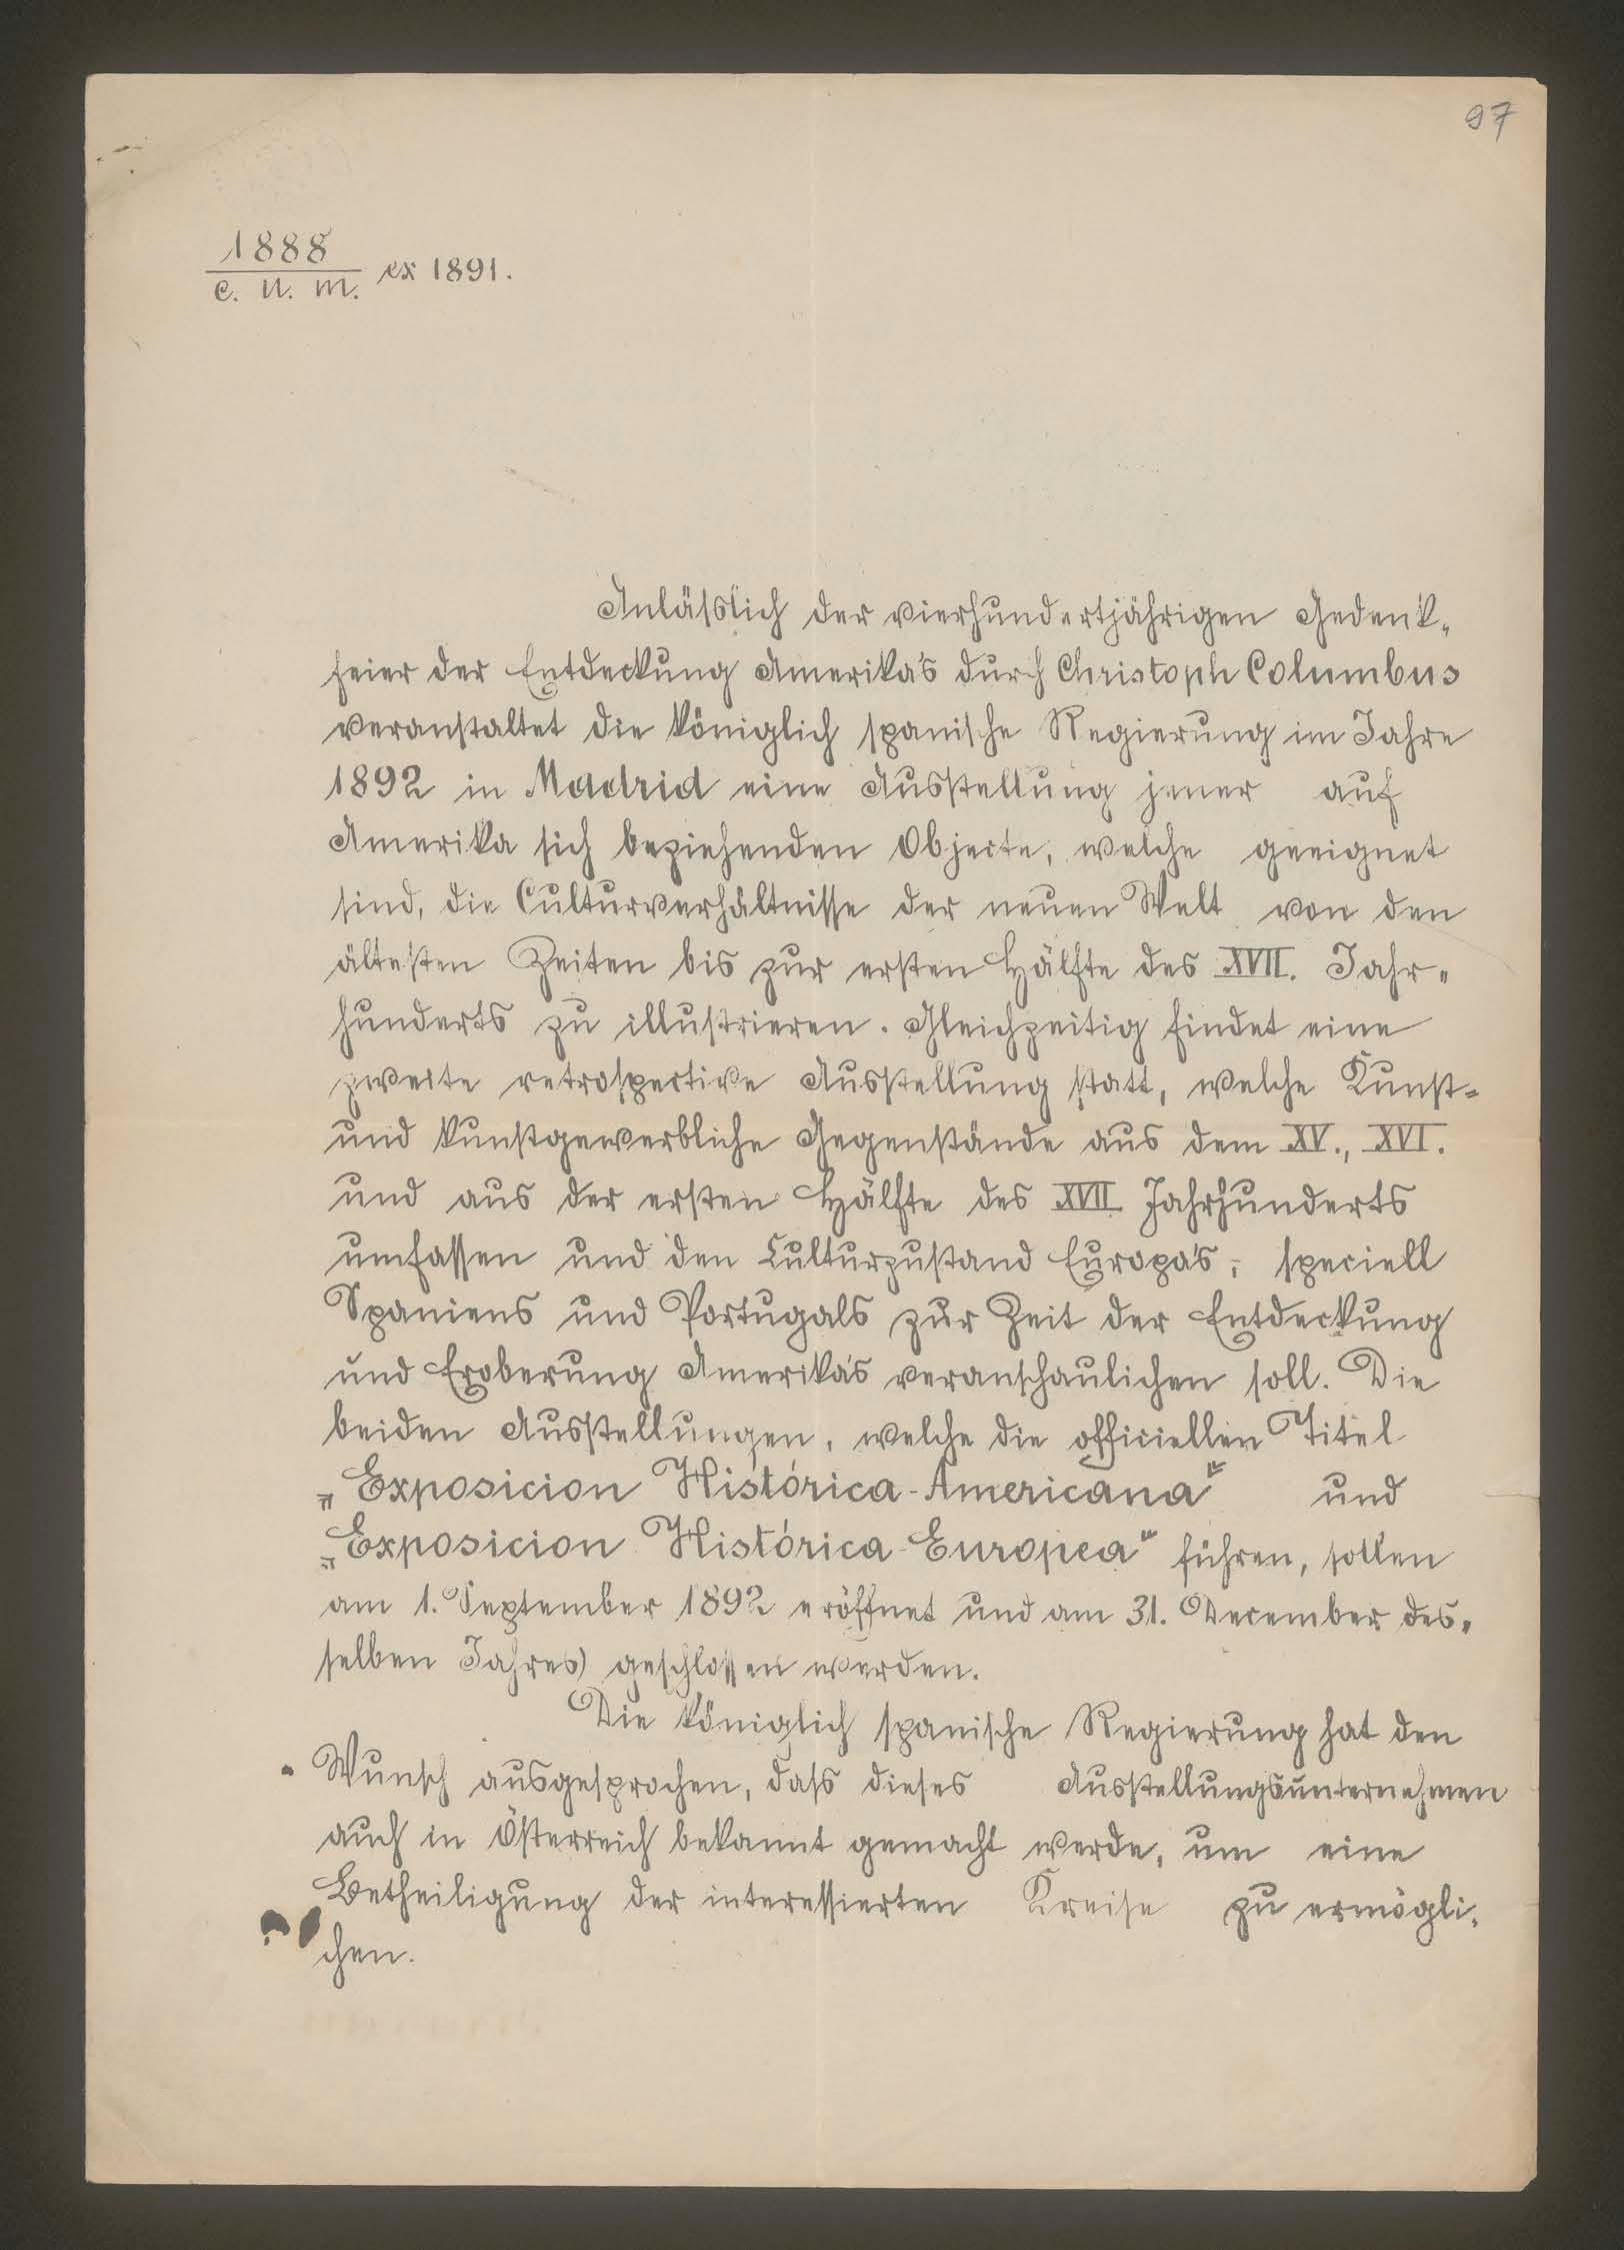 97
1888
C. U. M. ex 1891.
Anlässlich der vierhundertjährigen Gedenk-
feier der Entdeckung Amerika's durch Christoph Columbus
veranstaltet die königlich spanische Regierung im Jahre
1892 in Madrid eine Ausstellung jener auf
Amerika sich beziehenden Objecte, welche geeignet
sind, die Culturverhältnisse der neuen Welt von den
ältesten Zeiten bis zur ersten Hälfte des XVII. Jahr-
hunderts zu illustrieren. Gleichzeitig findet eine
zweite retrospective Ausstellung statt, welche Kunst-
und kunstgewerbliche Gegenstände aus dem XV., XVI.
und aus der ersten Hälfte des XVII Jahrhunderts
umfassen und den Culturzustand Europa's, speciell
Spaniens und Portugals zur Zeit der Entdeckung
und Eroberung Amerika's veranschaulichen soll. Die
beiden Ausstellungen, welche die officiellen Titel
„Exposicion Histórica-Americana" und
„Exposicion Histórica-Europea" führen, sollen
am 1. September 1892 eröffnet und am 31. December des-
selben Jahres geschlossen werden.
Die königlich spanische Regierung hat den
Wunsch ausgesprochen, dass dieses Ausstellungsunternehmen
auch in Österreich bekannt gemacht werde, um eine
Betheiligung der interessierten Kreise zu ermögli-
chen.